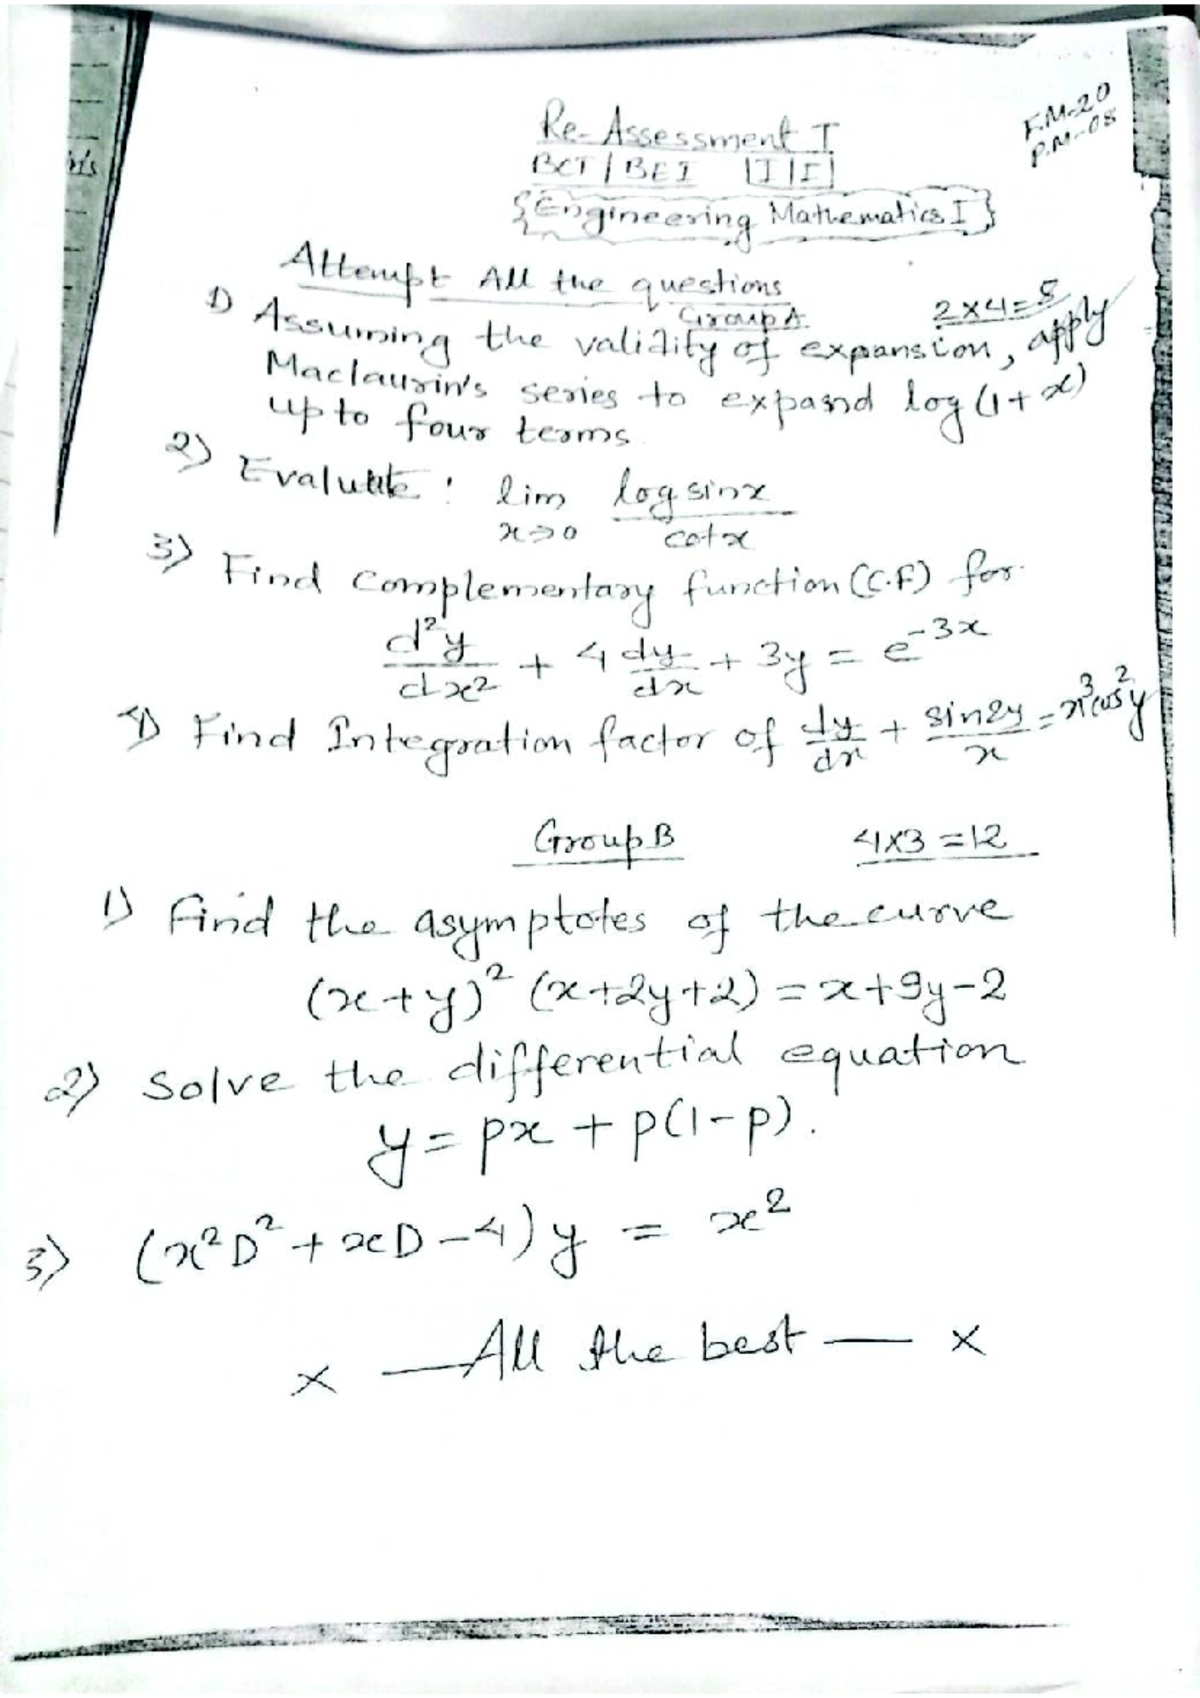 Re-Assessment I
F.M-20
P.M-08
BCT | BEI |I|I|
{Engineering Mathematics I}
Attempt All the questions
Group A 2x4=8
1) Assuming the validity of expansion, apply
Maclaurin's series to expand log(1+x)
up to four terms.
2) Evaluate : lim x→0 log sinx / cotx
3) Find complementary function (C.F) for
d²y/dx² + 4 dy/dx + 3y = e^-3x
4) Find Integration factor of dy/dx + sin2y/x = x³cos²y
Group B 4x3=12
1) Find the asymptotes of the curve
(x+y)² (x+2y+2) = x+9y-2
2) Solve the differential equation
y = px + p(1-p).
3) (x²D² + xD - 4) y = x²
x — All the best — x